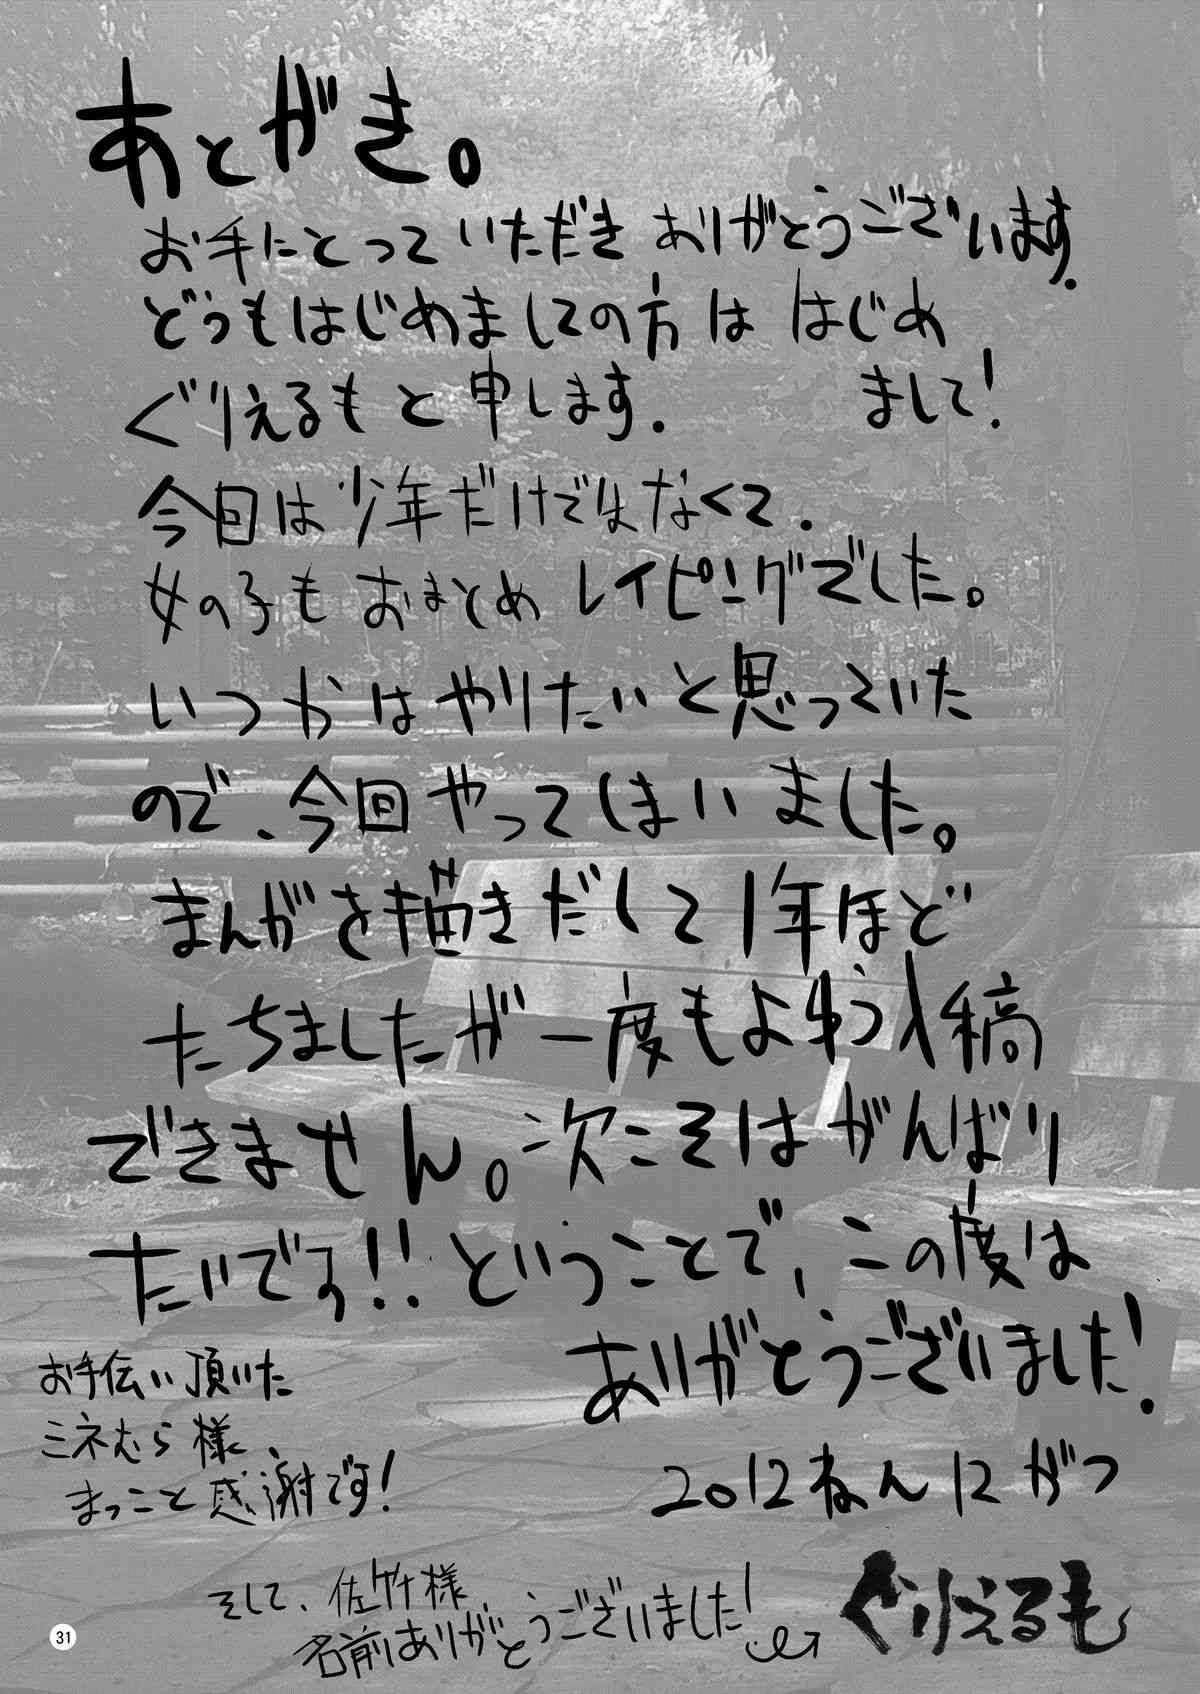 あとがき。
お手にとっていただき ありがとうございます.
どうもはじめましての方は はじめ
まして!
ぐりえるもと申します.
今回は少年だけではなくて.
女の子もおまとめレイピングでした。
いつかはやりたいと思っていた
ので、今回やってしまいました。
まんがを描きだして1年ほど
たちましたが一度もよゆう入稿
できません。次こそはがんばり
たいです!! ということで、この度は
ありがとうございました!
お手伝い頂いた
ミネむら様、
まっこと感謝です!
2012ねん12がつ
ぐりえるも
そして、佐竹様
名前ありがとうございました!
31